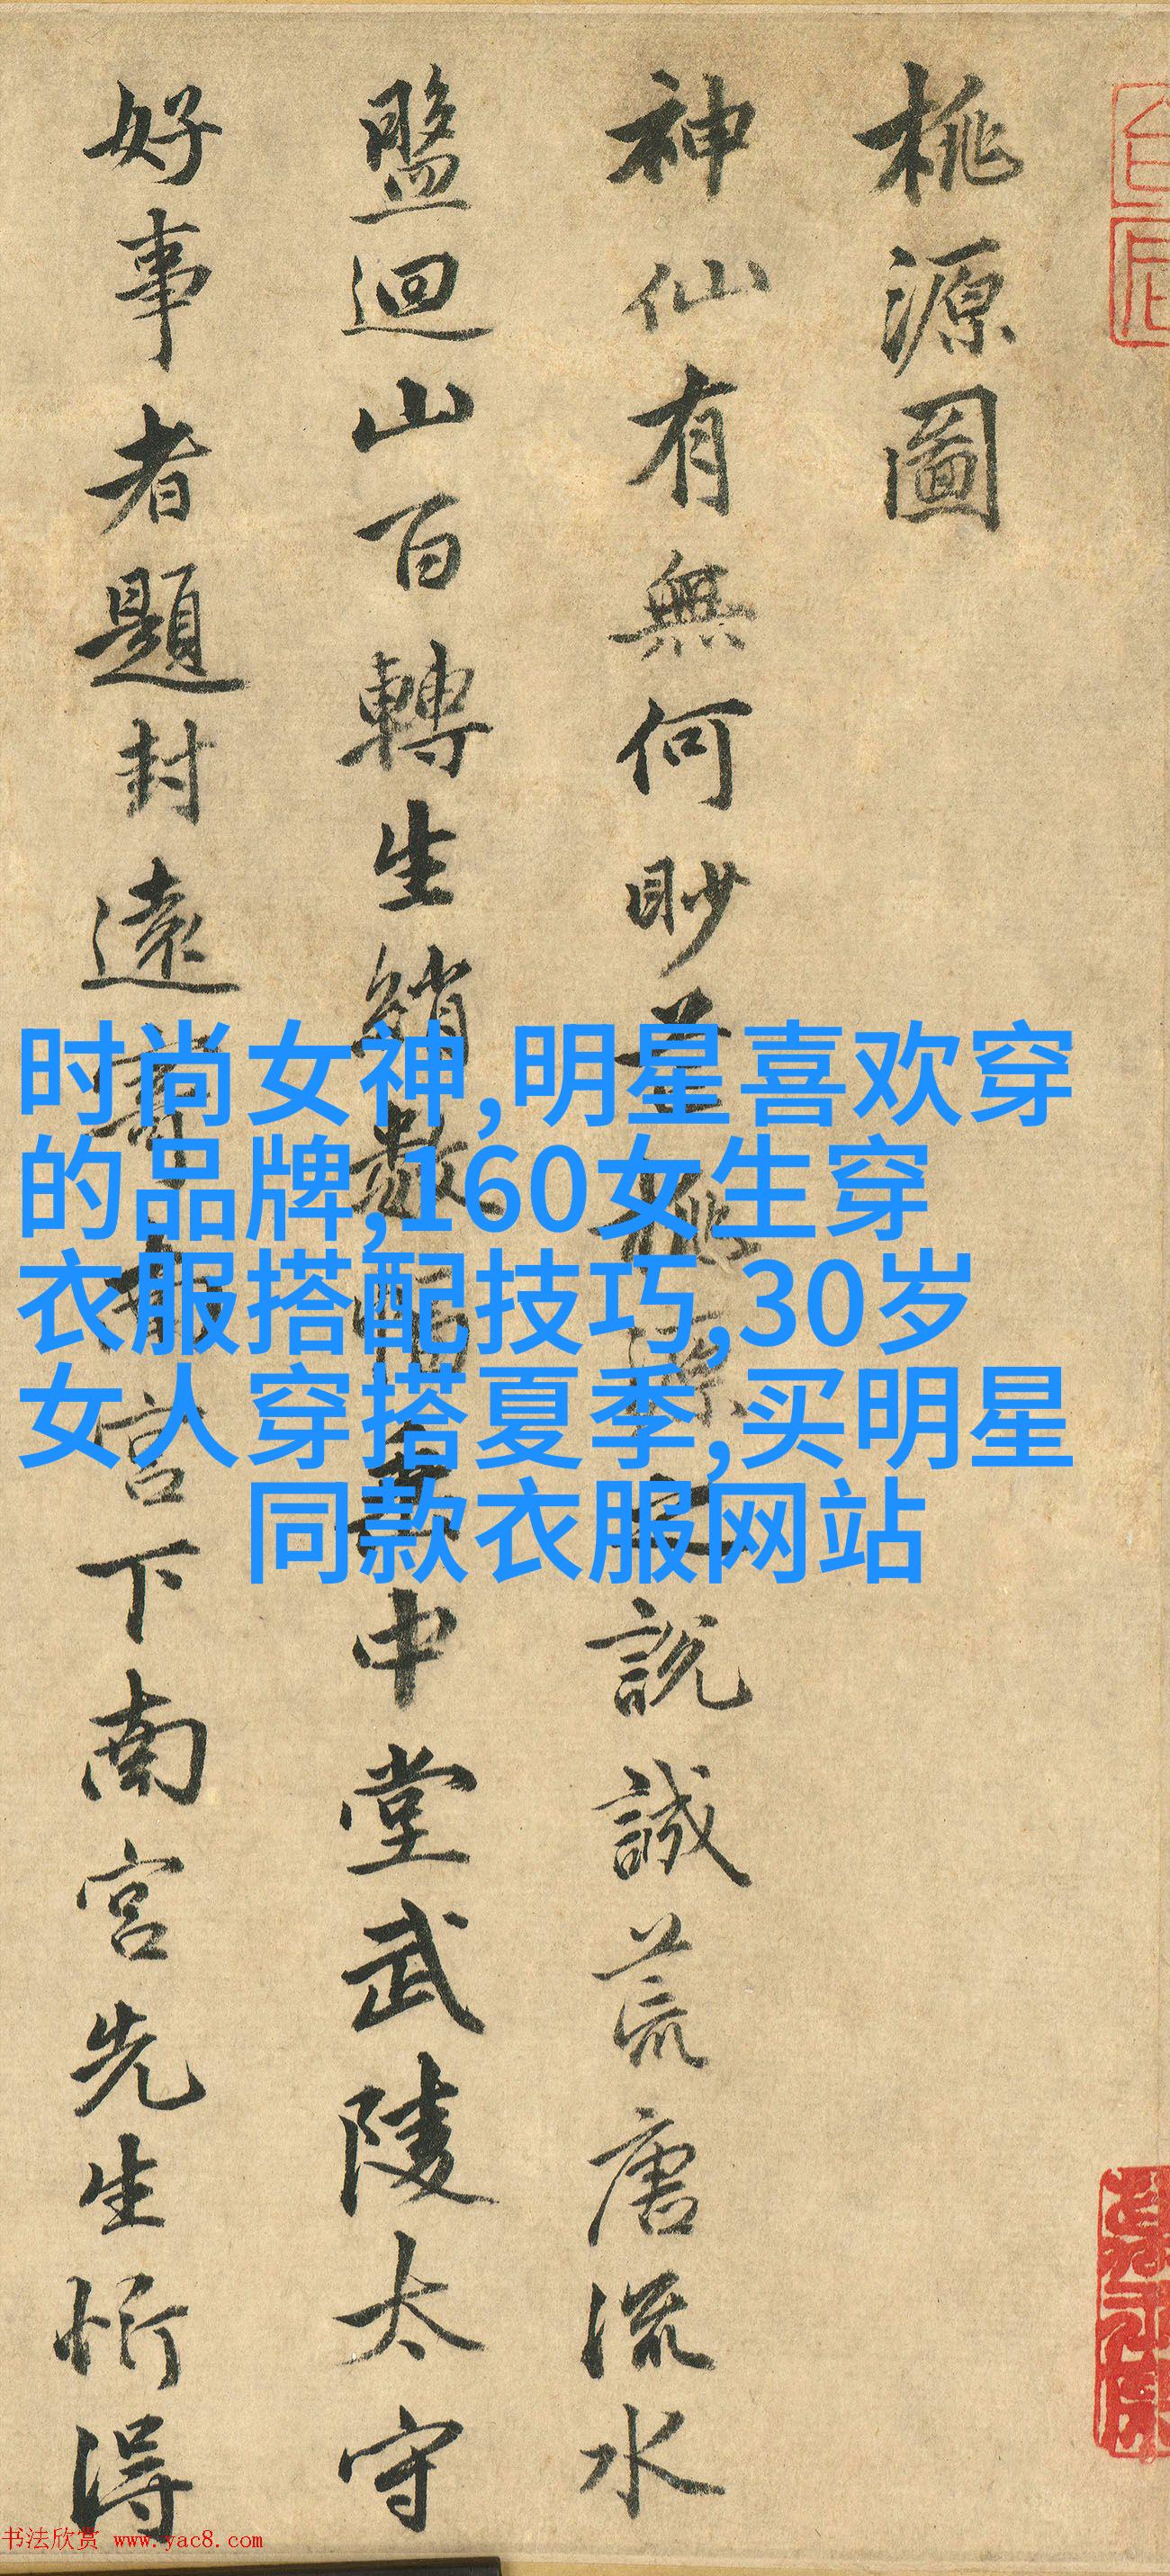 桃源圖
神仙有無何眇芒桃源之說誠荒唐流水
盤迴山百轉生綃數幅垂中堂武陵太守
好事者題封遠寄南宮下南宮先生忻得
时尚女神,明星喜欢穿
的品牌,160女生穿
衣服搭配技巧,30岁
女人穿搭夏季,买明星
同款衣服网站
书法欣赏 www.yac8.com